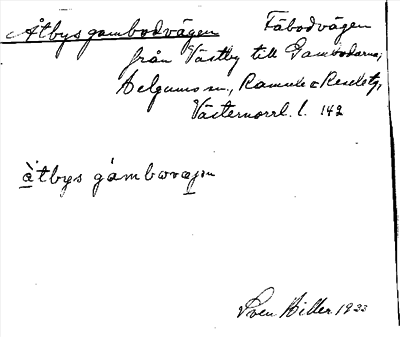 Åtbys gambodvägen Fäbodvägen
från Västby till Gambodarna,
Helgums sn., Ramsele o Resele tg,
Västernorrl. l. 142
å̀tbys gámbovæjen
Sven Hiller 1933